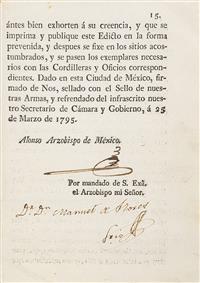 15.
ántes bien exhorten á su creencia, y que se
imprima y publique este Edicto en la forma
prevenida, y despues se fixe en los sitios acos-
tumbrados, y se pasen los exemplares necesa-
rios con las Cordilleras y Oficios correspon-
dientes. Dado en esta Ciudad de México, fir-
mado de Nos, sellado con el Sello de nues-
tras Armas, y refrendado del infrascrito nues-
tro Secretario de Cámara y Gobierno, á 25
de Marzo de 1795.
Alonso Arzobispo de México.
Por mandado de S. Exâ.
el Arzobispo mi Señor.
Dr. Dn. Manuel de Flores